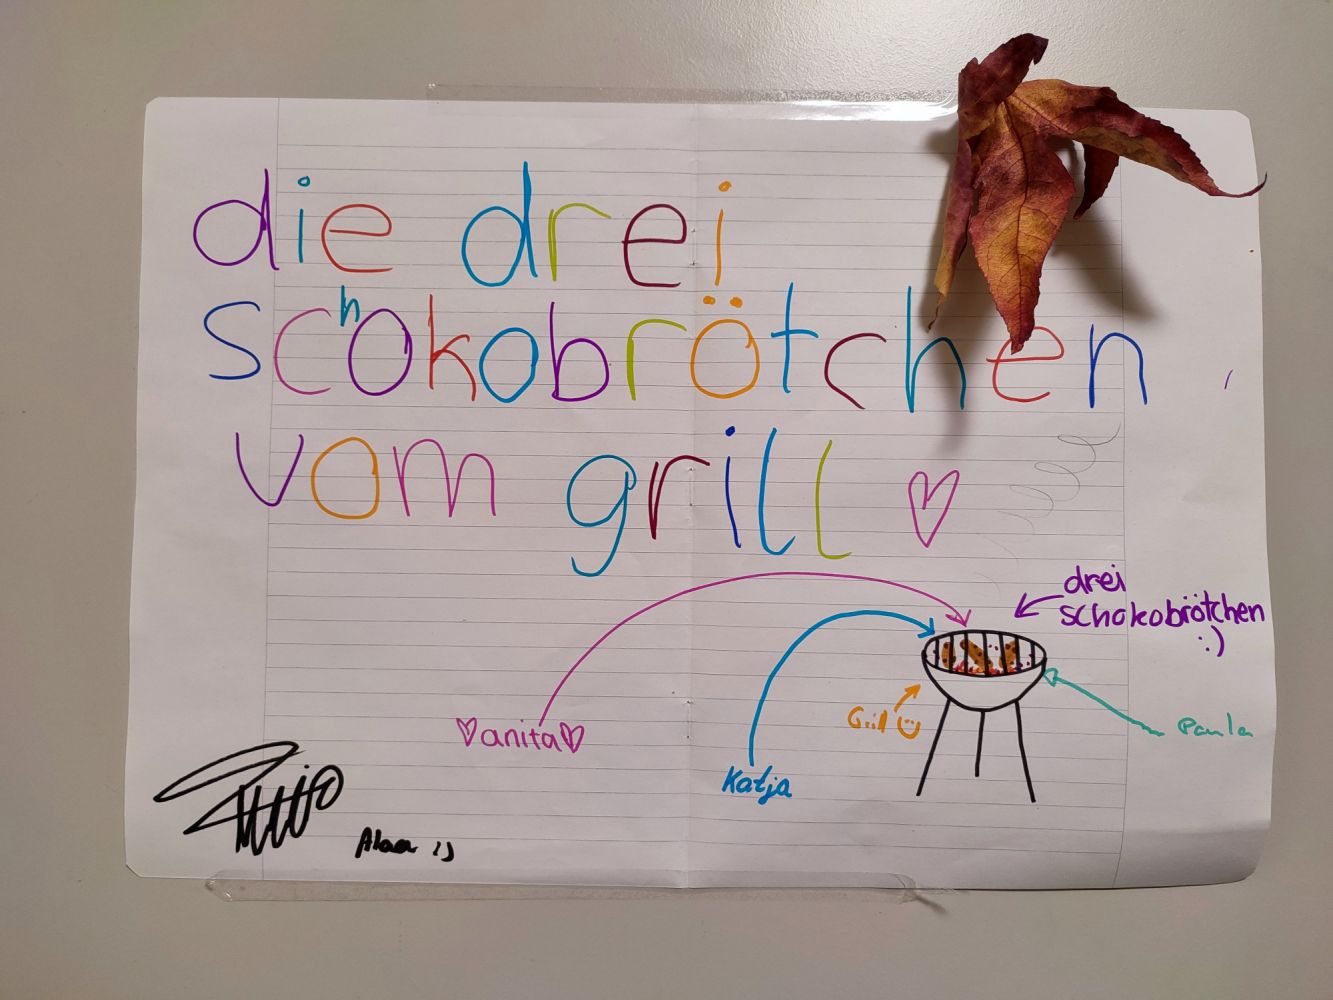 die drei
schokobrötchen
vom grill ♡
drei
schokobrötchen
:)
♡anita♡
Grill
Paula
Katja
Alaa :)